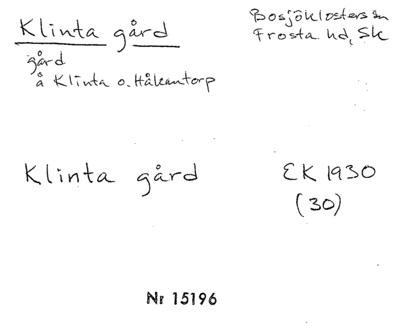 Klinta gård
Bosjöklosters sn
Frosta hd, Sk
gård
å Klinta o. Håkantorp
Klinta gård
EK 1930
(30)
Nr 15196